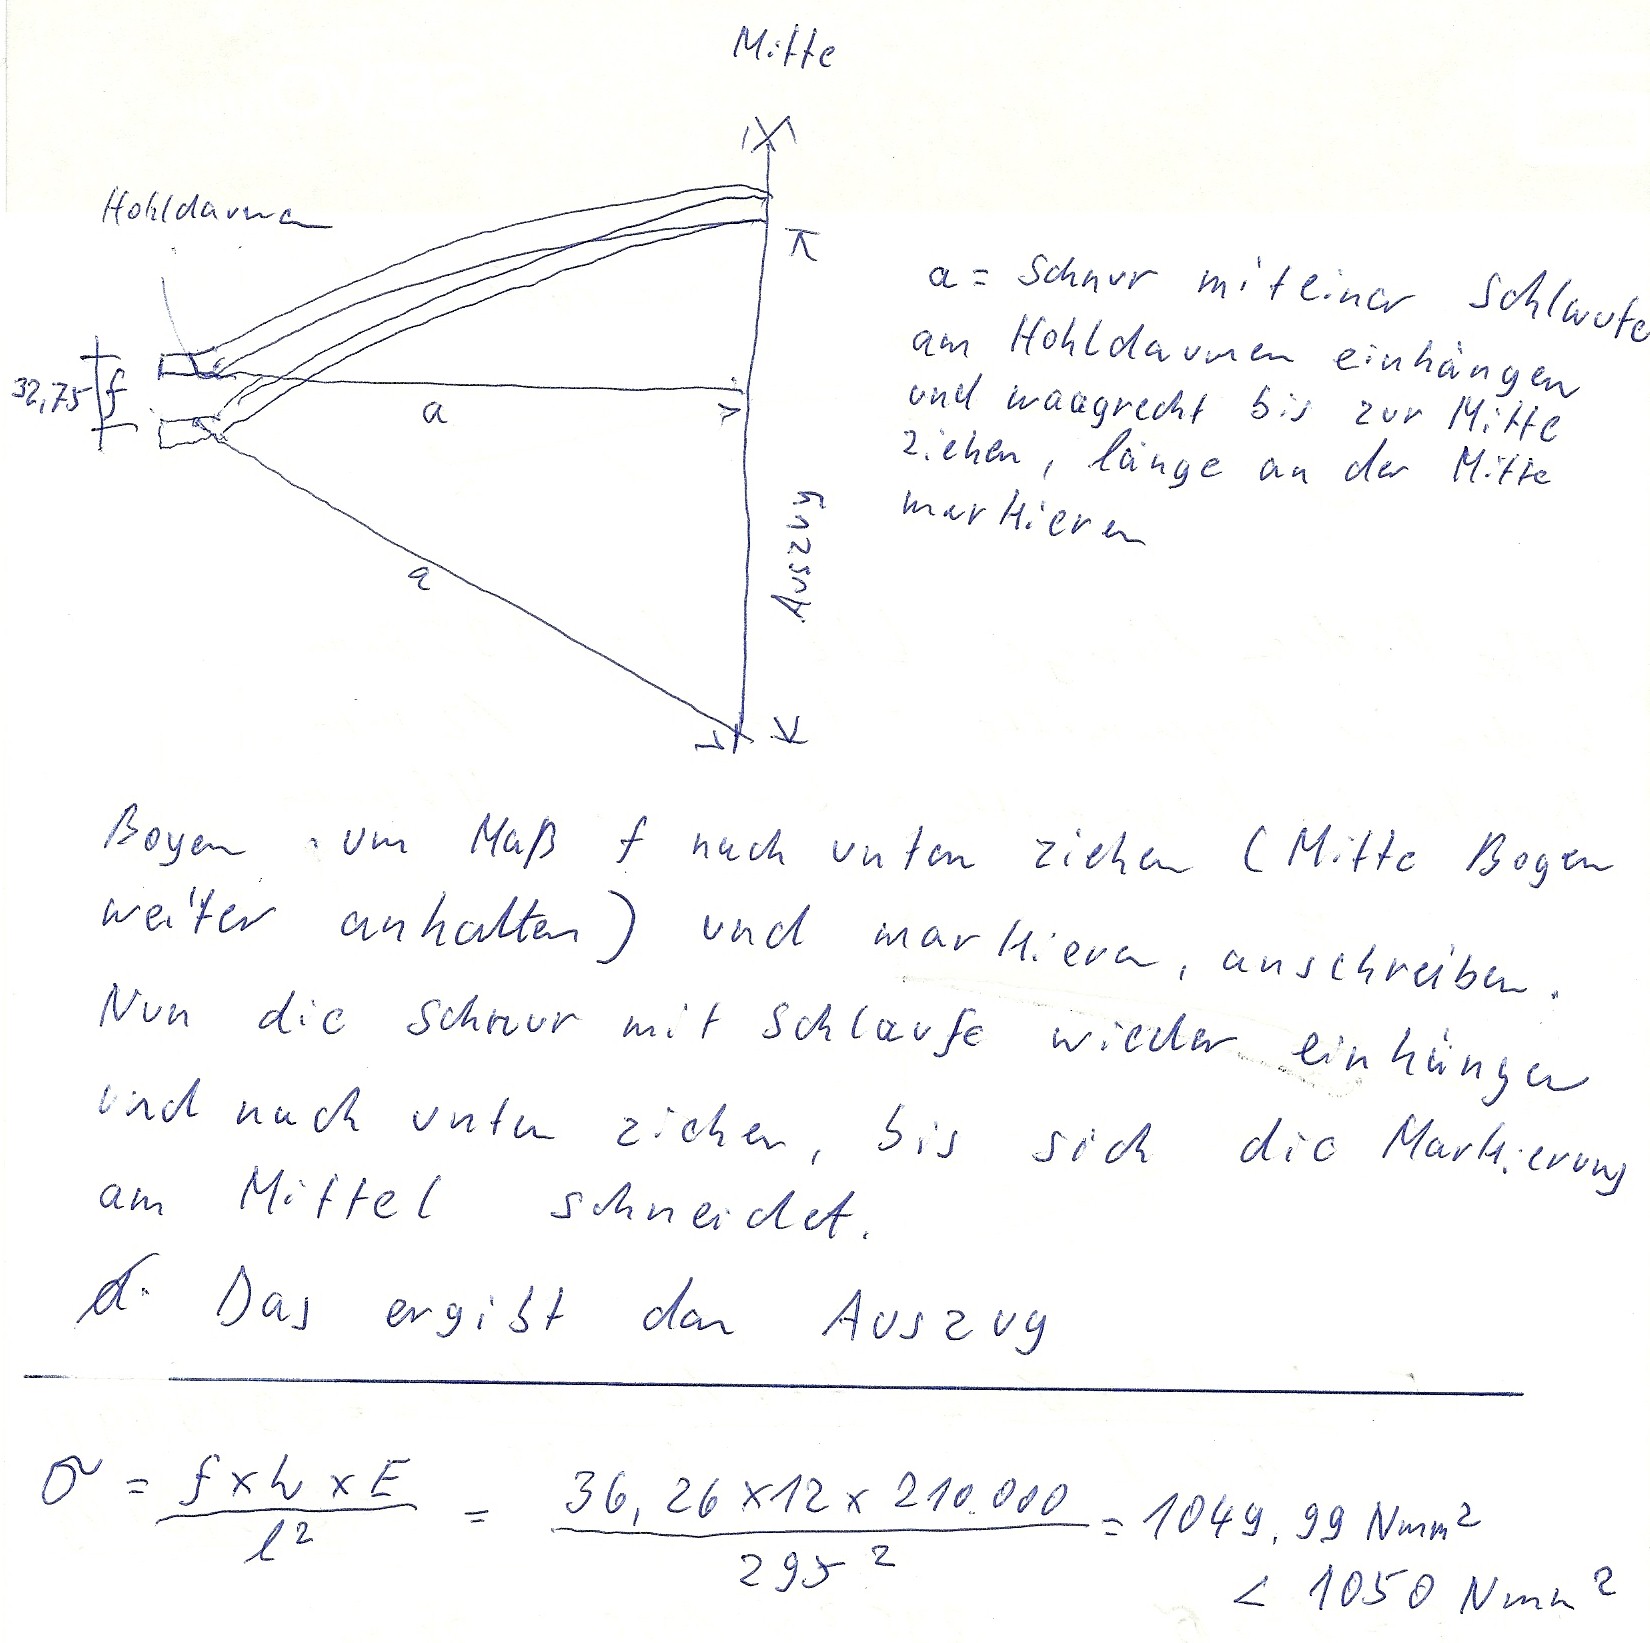 Mitte
Hohldaumen
32,75 f
a
a
Auszug
a = Schnur mit einer Schlaufe
am Hohldaumen einhängen
und waagrecht bis zur Mitte
ziehen, länge an der Mitte
markieren
Bogen um Maß f nach unten ziehen (Mitte Bogen
weiter anhalten) und markieren, anschreiben.
Nun die Schnur mit Schlaufe wieder einhängen
und nach unten ziehen, bis sich die Markierung
am Mittel schneidet.
Das ergibt den Auszug
σ = f x h x E / l² = 36,26 x 12 x 210.000 / 295² = 1049,99 Nmm²
< 1050 Nmm²